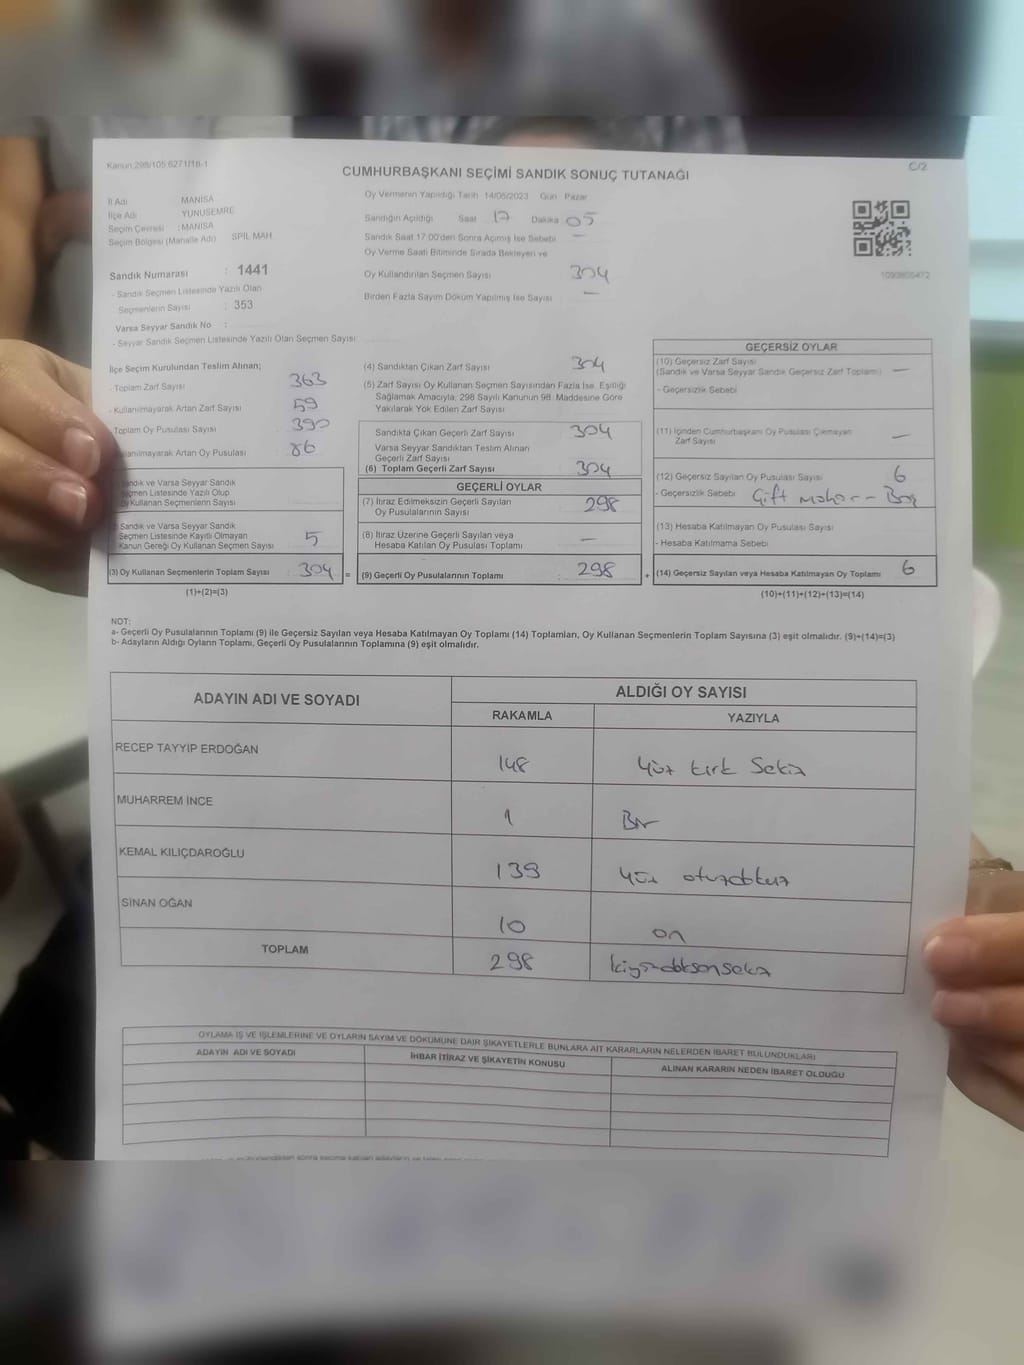 Kanun:298/105 6271/18-1
C/2
CUMHURBAŞKANI SEÇİMİ SANDIK SONUÇ TUTANAĞI
İl Adı MANİSA
İlçe Adı YUNUSEMRE
Seçim Çevresi : MANİSA
Seçim Bölgesi (Mahalle Adı) SPİL MAH
Sandık Numarası : 1441
- Sandık Seçmen Listesinde Yazılı Olan
Seçmenlerin Sayısı : 353
Varsa Seyyar Sandık No :
- Seyyar Sandık Seçmen Listesinde Yazılı Olan Seçmen Sayısı
Oy Vermenin Yapıldığı Tarih 14/05/2023 Gün Pazar
Sandığın Açıldığı Saat 17 Dakika 05
Sandık Saat 17:00'den Sonra Açılmış İse Sebebi —
Oy Verme Saati Bitiminde Sırada Bekleyen ve
Oy Kullandırılan Seçmen Sayısı 304
Birden Fazla Sayım Döküm Yapılmış İse Sayısı —
1093805472
İlçe Seçim Kurulundan Teslim Alınan;
- Toplam Zarf Sayısı 363
- Kullanılmayarak Artan Zarf Sayısı 59
- Toplam Oy Pusulası Sayısı 390
Kullanılmayarak Artan Oy Pusulası 86
Sandık ve Varsa Seyyar Sandık
Seçmen Listesinde Yazılı Olup
Oy Kullanan Seçmenlerin Sayısı
Sandık ve Varsa Seyyar Sandık
Seçmen Listesinde Kayıtlı Olmayan
Kanun Gereği Oy Kullanan Seçmen Sayısı 5
(3) Oy Kullanan Seçmenlerin Toplam Sayısı : 304 =
(1)+(2)=(3)
(4) Sandıktan Çıkan Zarf Sayısı 304
(5) Zarf Sayısı Oy Kullanan Seçmen Sayısından Fazla İse, Eşitliği
Sağlamak Amacıyla, 298 Sayılı Kanunun 98. Maddesine Göre
Yakılarak Yok Edilen Zarf Sayısı
Sandıkta Çıkan Geçerli Zarf Sayısı 304
Varsa Seyyar Sandıktan Teslim Alınan
Geçerli Zarf Sayısı
(6) Toplam Geçerli Zarf Sayısı 304
GEÇERLİ OYLAR
(7) İtiraz Edilmeksizin Geçerli Sayılan
Oy Pusulalarının Sayısı 298
(8) İtiraz Üzerine Geçerli Sayılan veya
Hesaba Katılan Oy Pusulası Toplamı —
(9) Geçerli Oy Pusulalarının Toplamı : 298 +
GEÇERSİZ OYLAR
(10) Geçersiz Zarf Sayısı
(Sandık ve Varsa Seyyar Sandık Geçersiz Zarf Toplamı) —
- Geçersizlik Sebebi
(11) İçinden Cumhurbaşkanı Oy Pusulası Çıkmayan
Zarf Sayısı —
(12) Geçersiz Sayılan Oy Pusulası Sayısı 6
- Geçersizlik Sebebi Çift mühür - Boş
(13) Hesaba Katılmayan Oy Pusulası Sayısı
- Hesaba Katılmama Sebebi
(14) Geçersiz Sayılan veya Hesaba Katılmayan Oy Toplamı 6
(10)+(11)+(12)+(13)=(14)
NOT:
a- Geçerli Oy Pusulalarının Toplamı (9) ile Geçersiz Sayılan veya Hesaba Katılmayan Oy Toplamı (14) Toplamları, Oy Kullanan Seçmenlerin Toplam Sayısına (3) eşit olmalıdır. (9)+(14)=(3)
b- Adayların Aldığı Oyların Toplamı, Geçerli Oy Pusulalarının Toplamına (9) eşit olmalıdır.
ADAYIN ADI VE SOYADI ALDIĞI OY SAYISI
RAKAMLA YAZIYLA
RECEP TAYYİP ERDOĞAN 148 yüz kırk sekiz
MUHARREM İNCE 1 Bir
KEMAL KILIÇDAROĞLU 139 yüz otuzdokuz
SİNAN OĞAN 10 on
TOPLAM 298 ikiyüzdoksansekiz
OYLAMA İŞ VE İŞLEMLERİNE VE OYLARIN SAYIM VE DÖKÜMÜNE DAİR ŞİKAYETLERLE BUNLARA AİT KARARLARIN NELERDEN İBARET BULUNDUKLARI
ADAYIN ADI VE SOYADI İHBAR İTİRAZ VE ŞİKAYETİN KONUSU ALINAN KARARIN NEDEN İBARET OLDUĞU